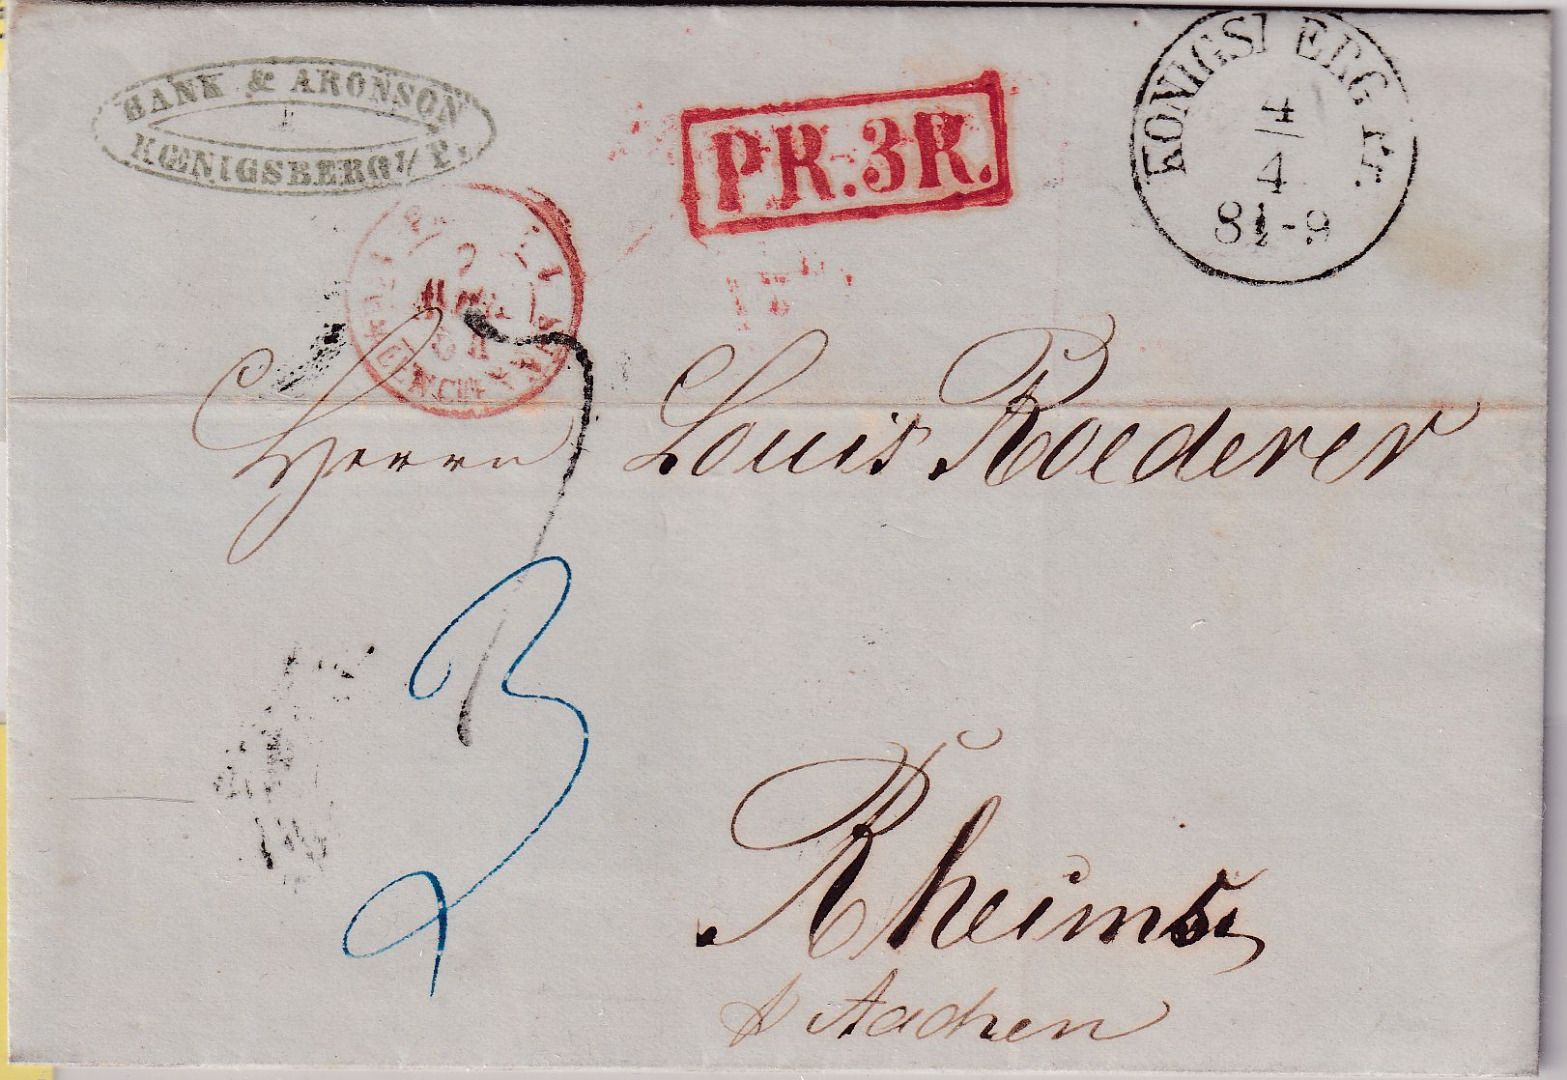 BANK & ARONSON
KŒNIGSBERG I/P.
PR. 3 R.
KÖNIGSBERG PR.
4
4
8½-9
Herrn Louis Roederer
3
Rheims
Aachen